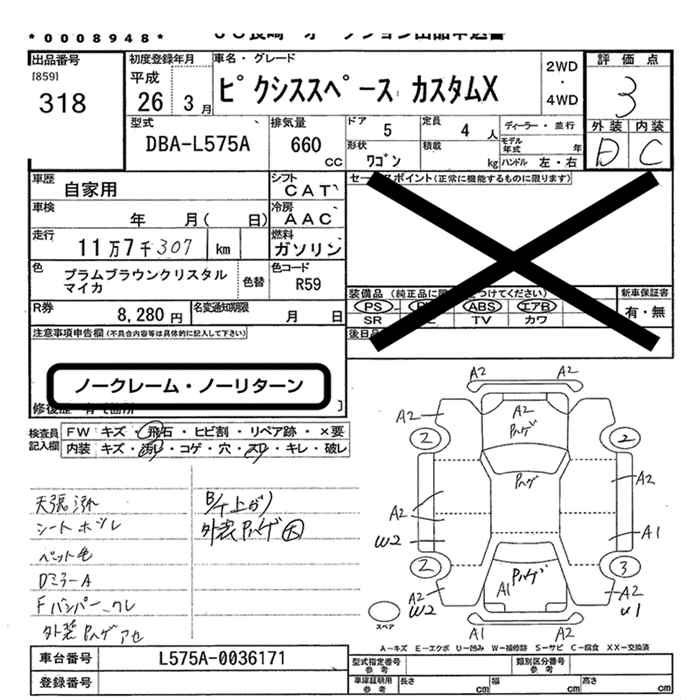 *0008948*
出品番号
[859]
318
初度登録年月
平成
26 3月
車名・グレード
ピクシススペース カスタムX
2WD
・
4WD
評価点
3
外装 内装
D C
型式
DBA-L575A
排気量
660
cc
ドア 5
定員 4 人
ディーラー・並行
形状
ワゴン
積載
kg
モデル年式 年
ハンドル 左・右
車歴
自家用
シフト
CAT
車検
年 月( 日)
冷房
AAC
走行
11万7千307 km
燃料
ガソリン
色
プラムブラウンクリスタル
マイカ
色替
色コード
R59
R券
8,280円
名変通知期限
月 日
セールスポイント(正常に機能するものに限ります)
装備品
PS
ABS エアB
SR TV カワ
新車保証書
有・無
後日品
注意事項申告欄(不具合内容等は具体的に記入して下さい)
ノークレーム・ノーリターン
検査員記入欄
FW キズ・飛石・ヒビ割・リペア跡・×要
内装 キズ・汚れ・コゲ・穴・スレ・キレ・破レ
天張汚れ
シートホツレ
ペット毛
DミラーA
Fバンパークレ
外装Pハゲアセ
B/T上がり
外装Pハゲ大
A2 A2
A2 A2
Pハゲ
A2
2 2
Pハゲ
A2
A2
W2
A1
2 3
Pハゲ
A1
A2
W2
A2
U1
A1 A2
スペア
A-キズ E-エクボ U-凹み W-補修跡 S-サビ C-腐食 XX-交換済
車台番号
L575A-0036171
登録番号
型式指定番号
参考
類別区分番号
参考
車庫証明用
参考
長さ cm
幅 cm
高さ cm